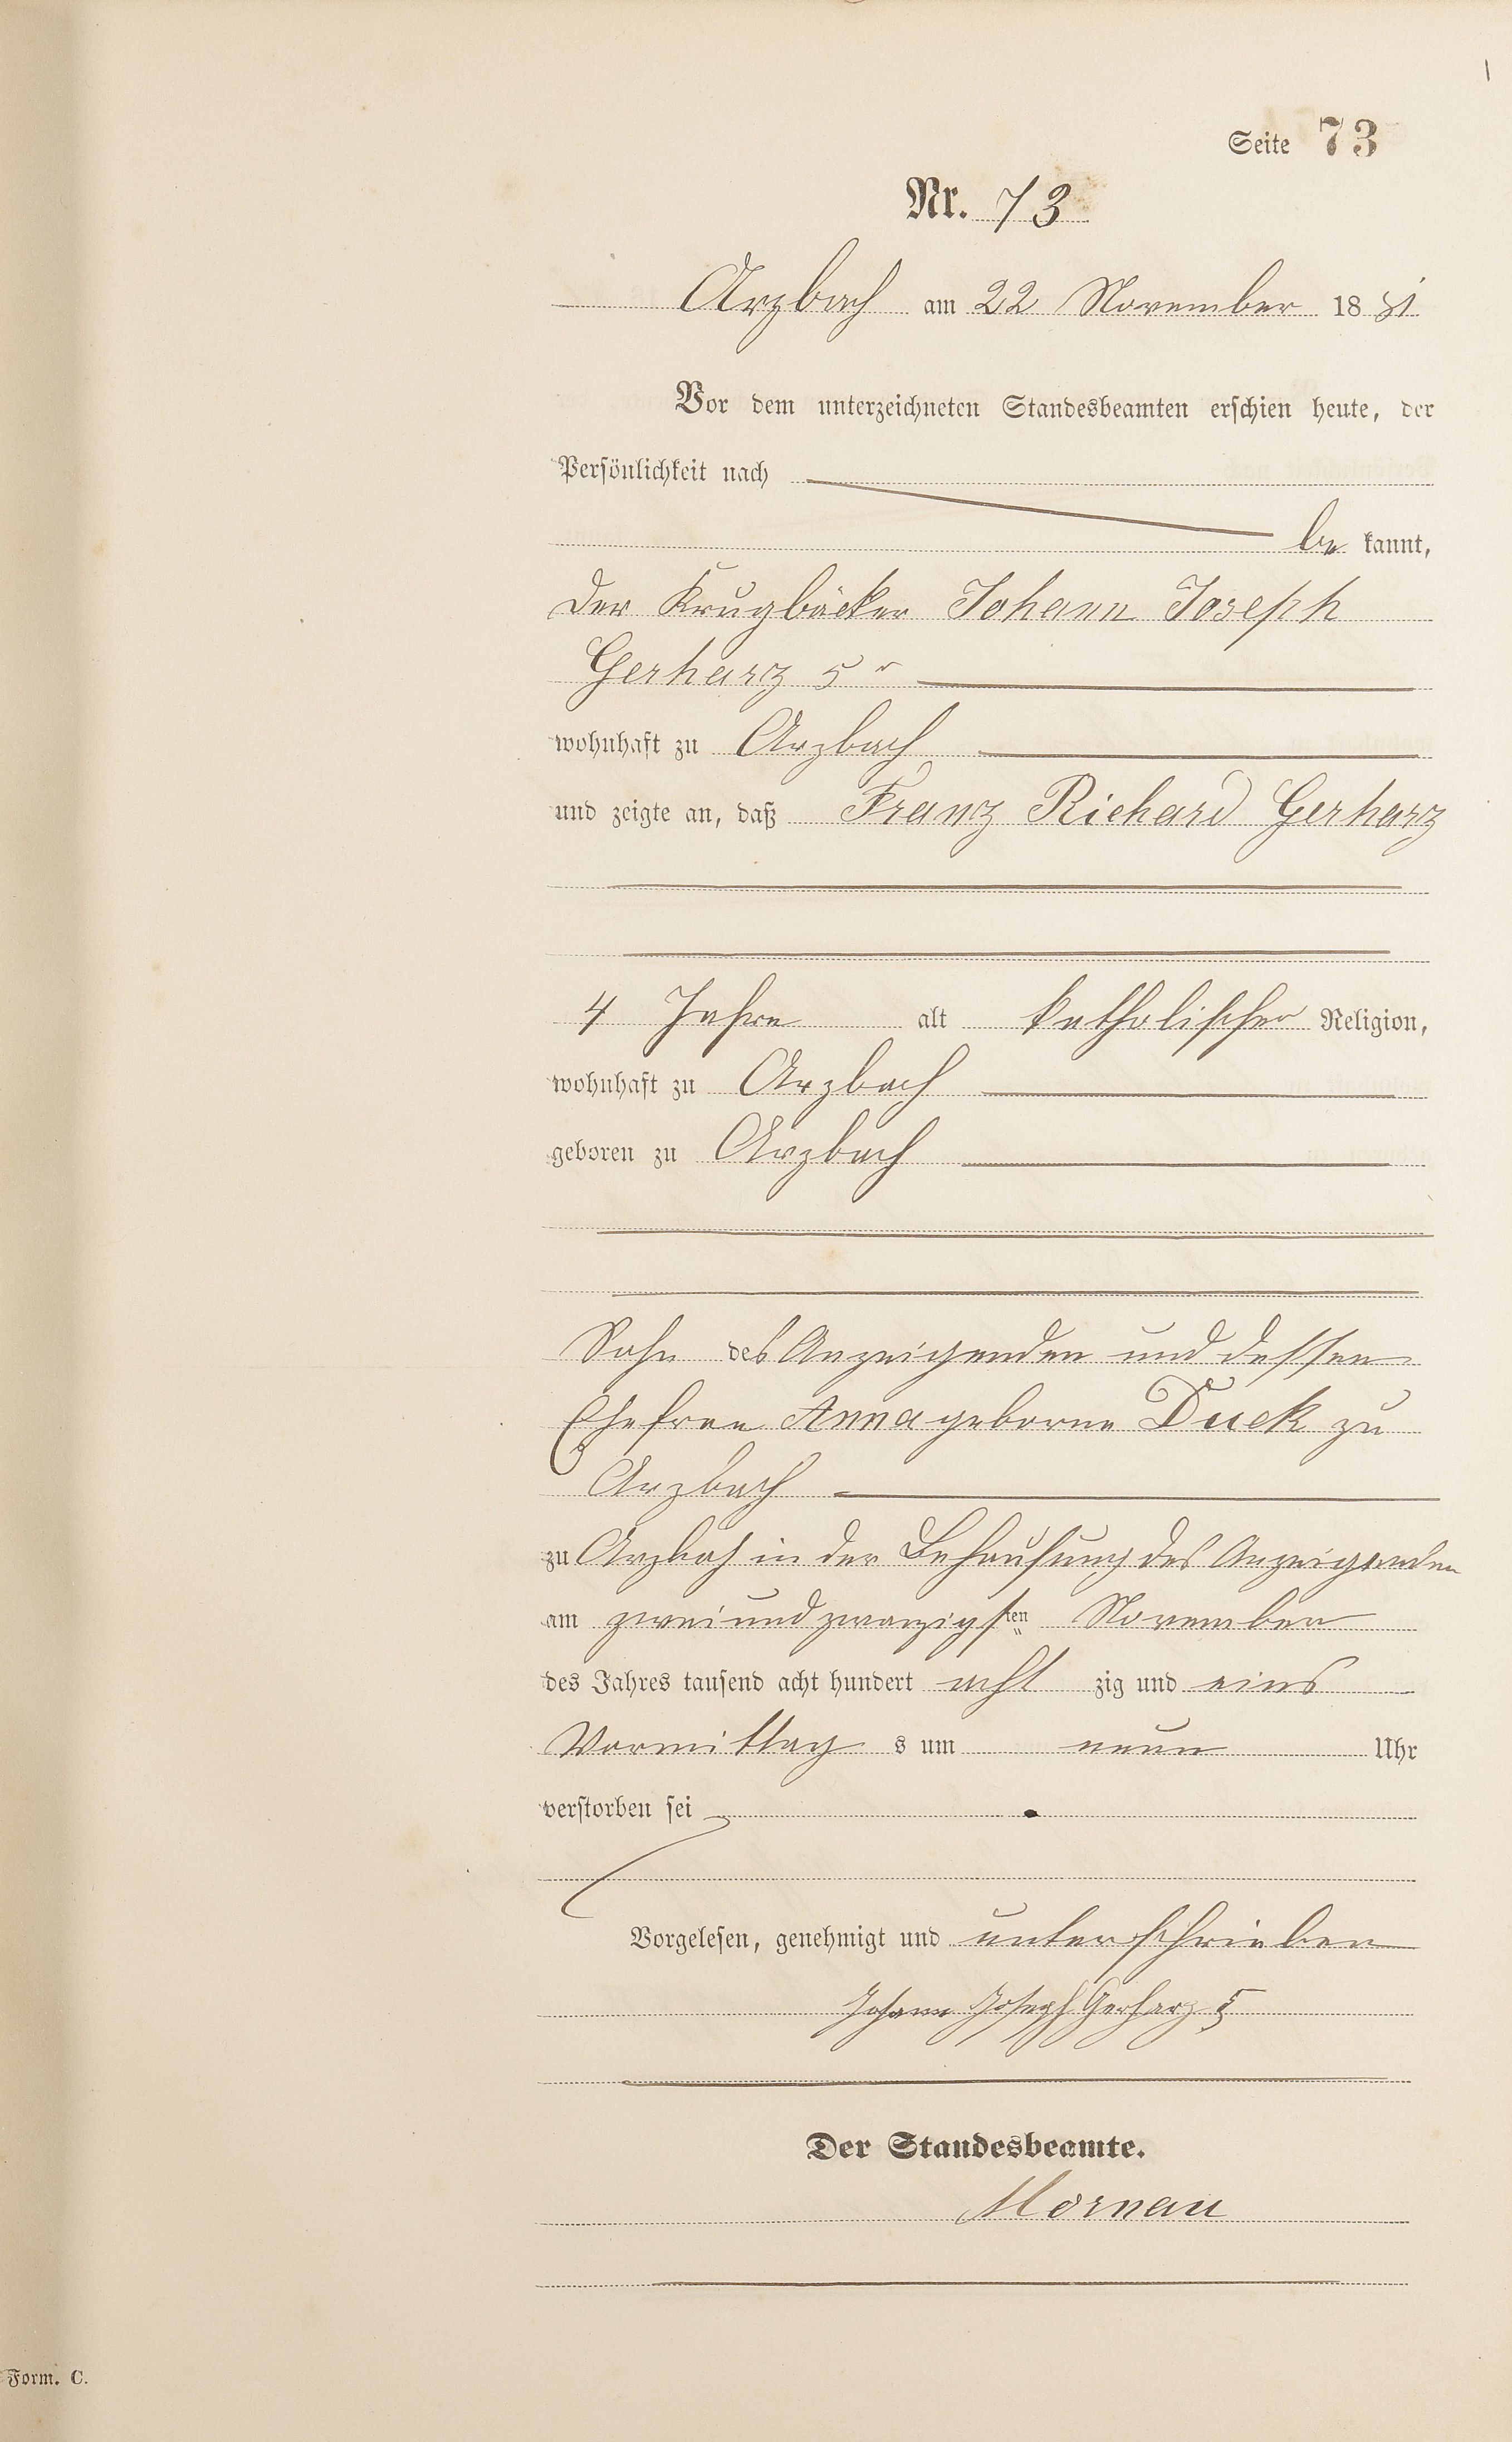 Seite 73
Nr. 73
Arzbach am 22 November 1881
Vor dem unterzeichneten Standesbeamten erschien heute, der
Persönlichkeit nach
be kannt,
der Krugbäcker Johann Joseph
Gerharz 5r
wohnhaft zu Arzbach
und zeigte an, daß Franz Richard Gerharz
4 Jahre alt katholischer Religion,
wohnhaft zu Arzbach
geboren zu Arzbach
Sohn des Anzeigenden und dessen
Ehefrau Anna geborne Duck zu
Arzbach
zu Arzbach in der Behausung des Anzeigenden
am zweiundzwanzigsten November
des Jahres tausend acht hundert acht zig und eins
Vormittag s um neun Uhr
verstorben sei
Vorgelesen, genehmigt und unterschrieben
Johann Joseph Gerharz 5
Der Standesbeamte.
Mornau
Form. C.